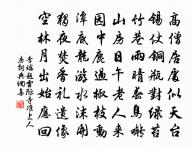 高僧居處似天台
錫仗銅瓶對綠苔
竹巷雨晴春鳥囀
山房日午老人來
園中鹿過椒枝動
潭底龍遊水沫開
獨夜焚香禮遺像
空林月出始應回
李端題雲際寺准上人
房詞典網書